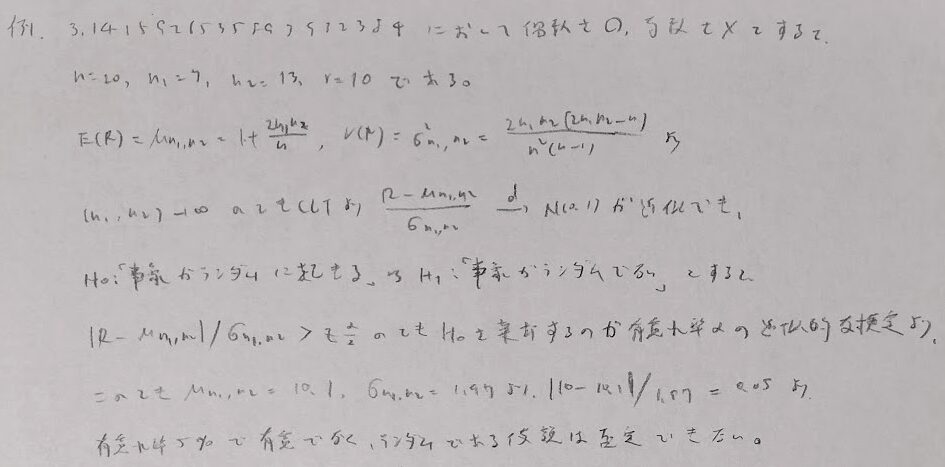 例. 3.1415926535897932384 において偶数を○, 奇数を×とすると,
n=20, n₁=7, n₂=13, r=10 である。
E(R) = μn₁,n₂ = 1+ 2n₁n₂/n , V(R) = σ²n₁,n₂ = 2n₁n₂(2n₁n₂-n)/n²(n-1) より
(n₁,n₂)→∞ のときCLTより (R-μn₁,n₂)/σn₁,n₂ →d N(0,1) が近似でき,
H₀:「事象がランダムに起きる」 vs H₁:「事象がランダムでない」 とすると
|R-μn₁,n₂|/σn₁,n₂ > z α/2 のとき H₀を棄却するのが有意水準αの近似的な検定より,
このとき μn₁,n₂ = 10.1, σn₁,n₂ = 1.97 より, |10-10.1|/1.97 = 0.05 より
有意水準5%で有意でなく, ランダムである仮説は否定できない。